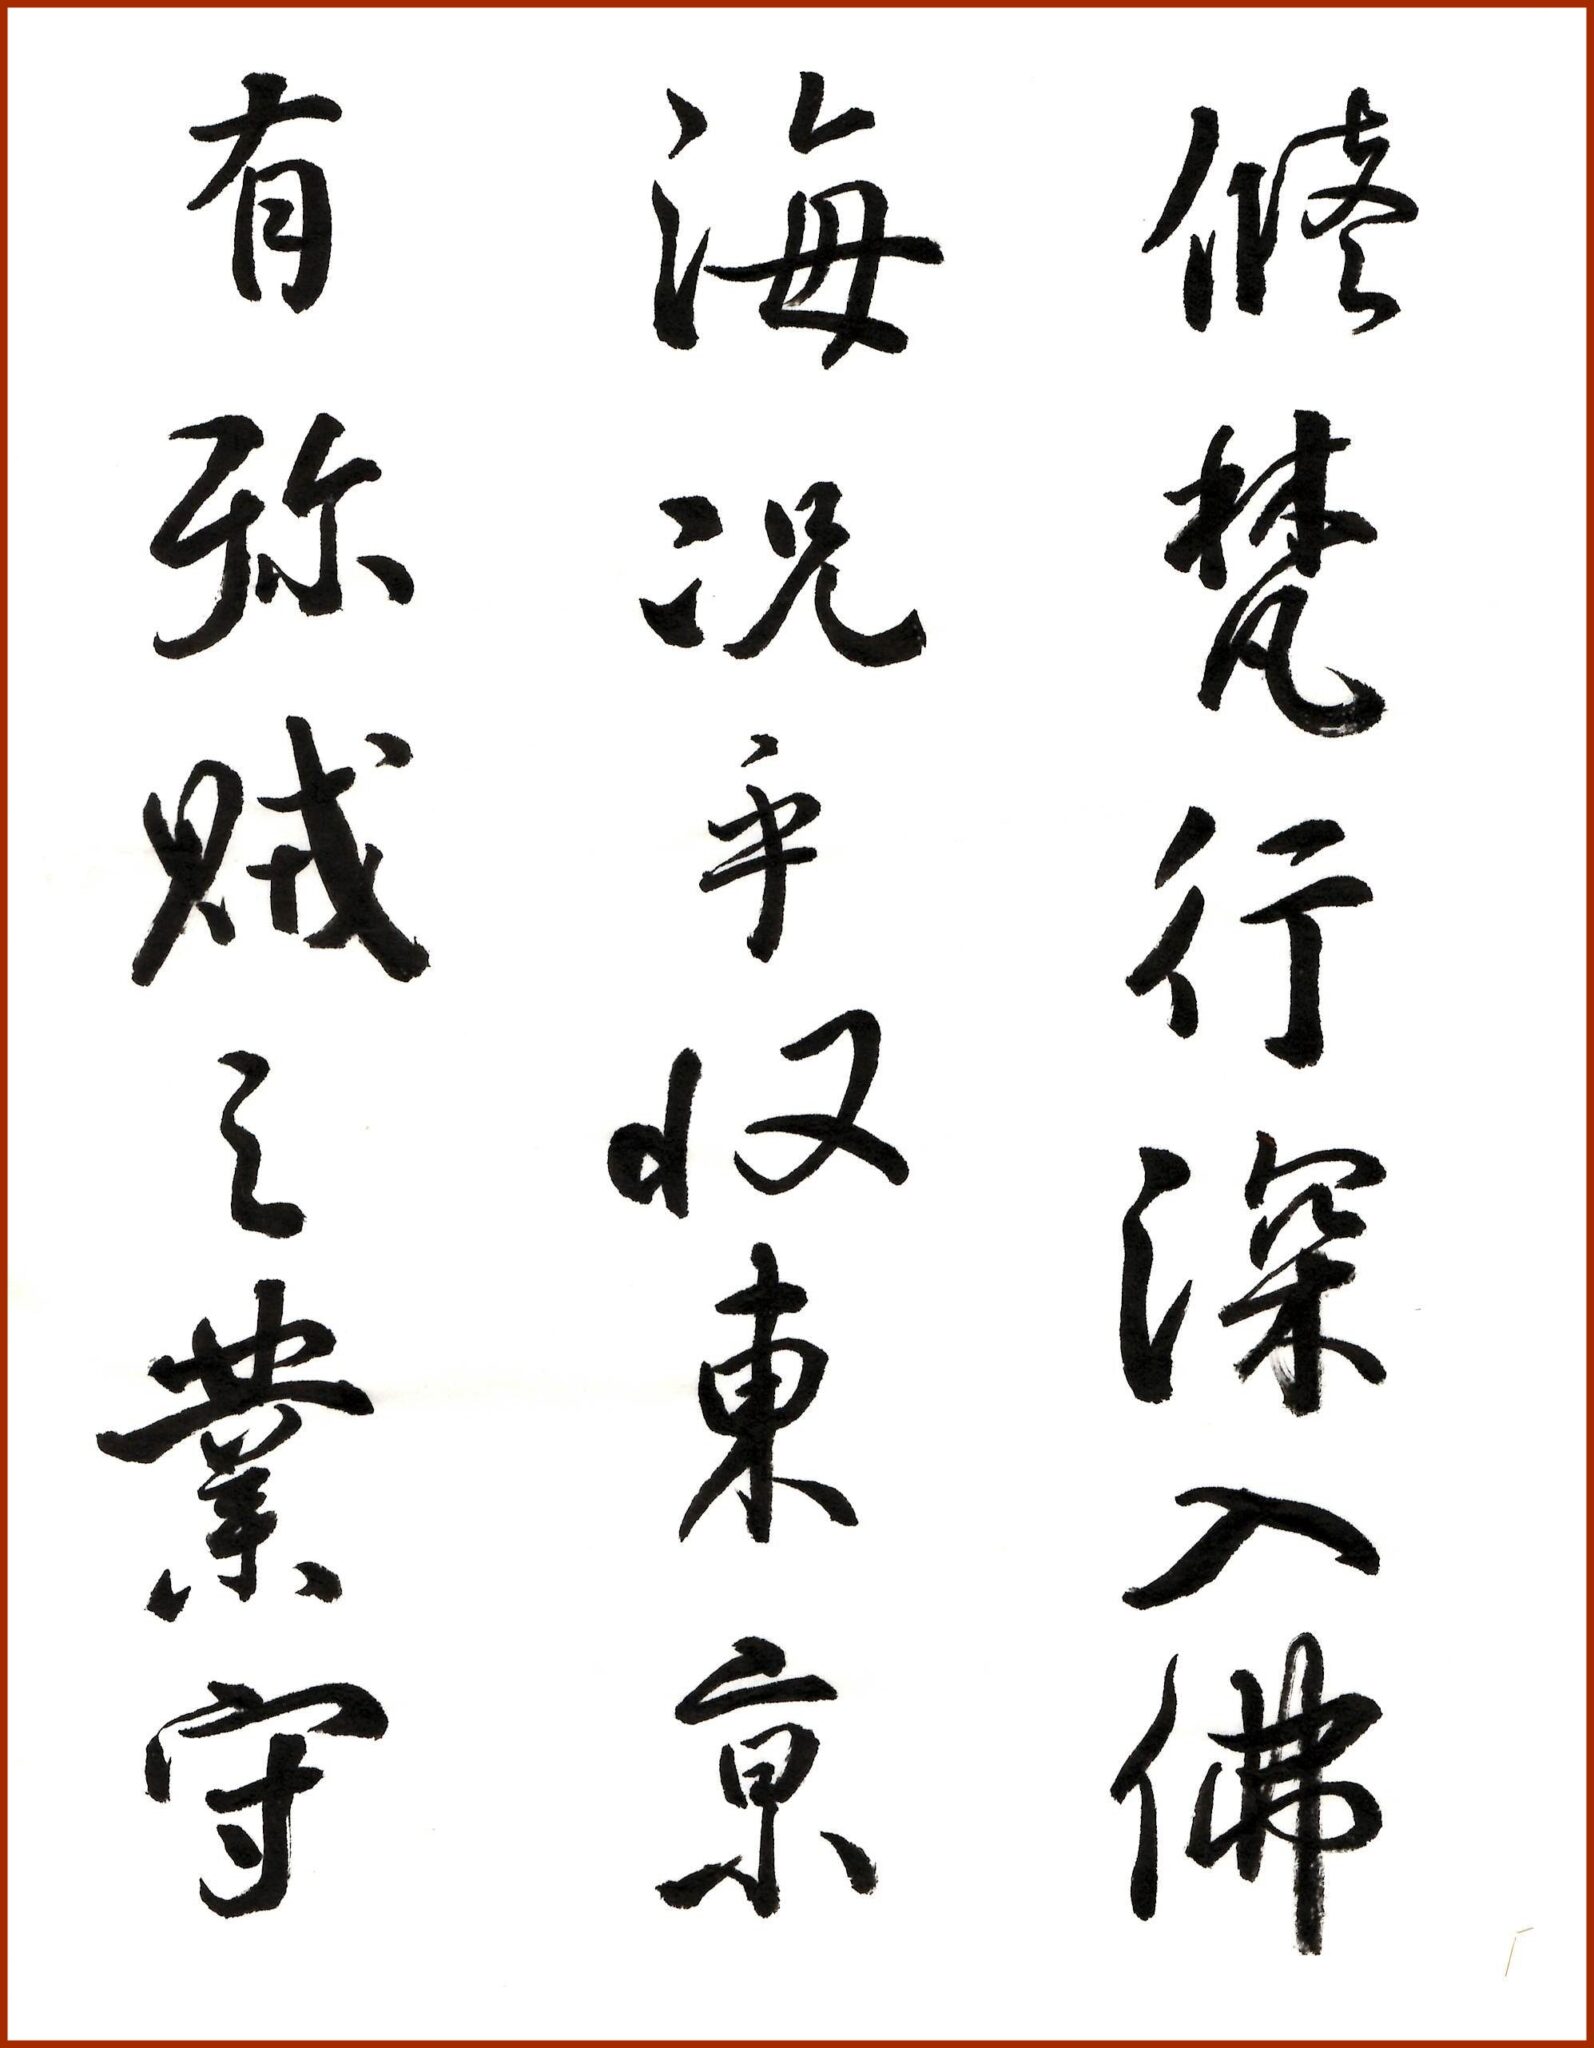 修梵行深入佛
海况乎収東亰
有殄賊之業守